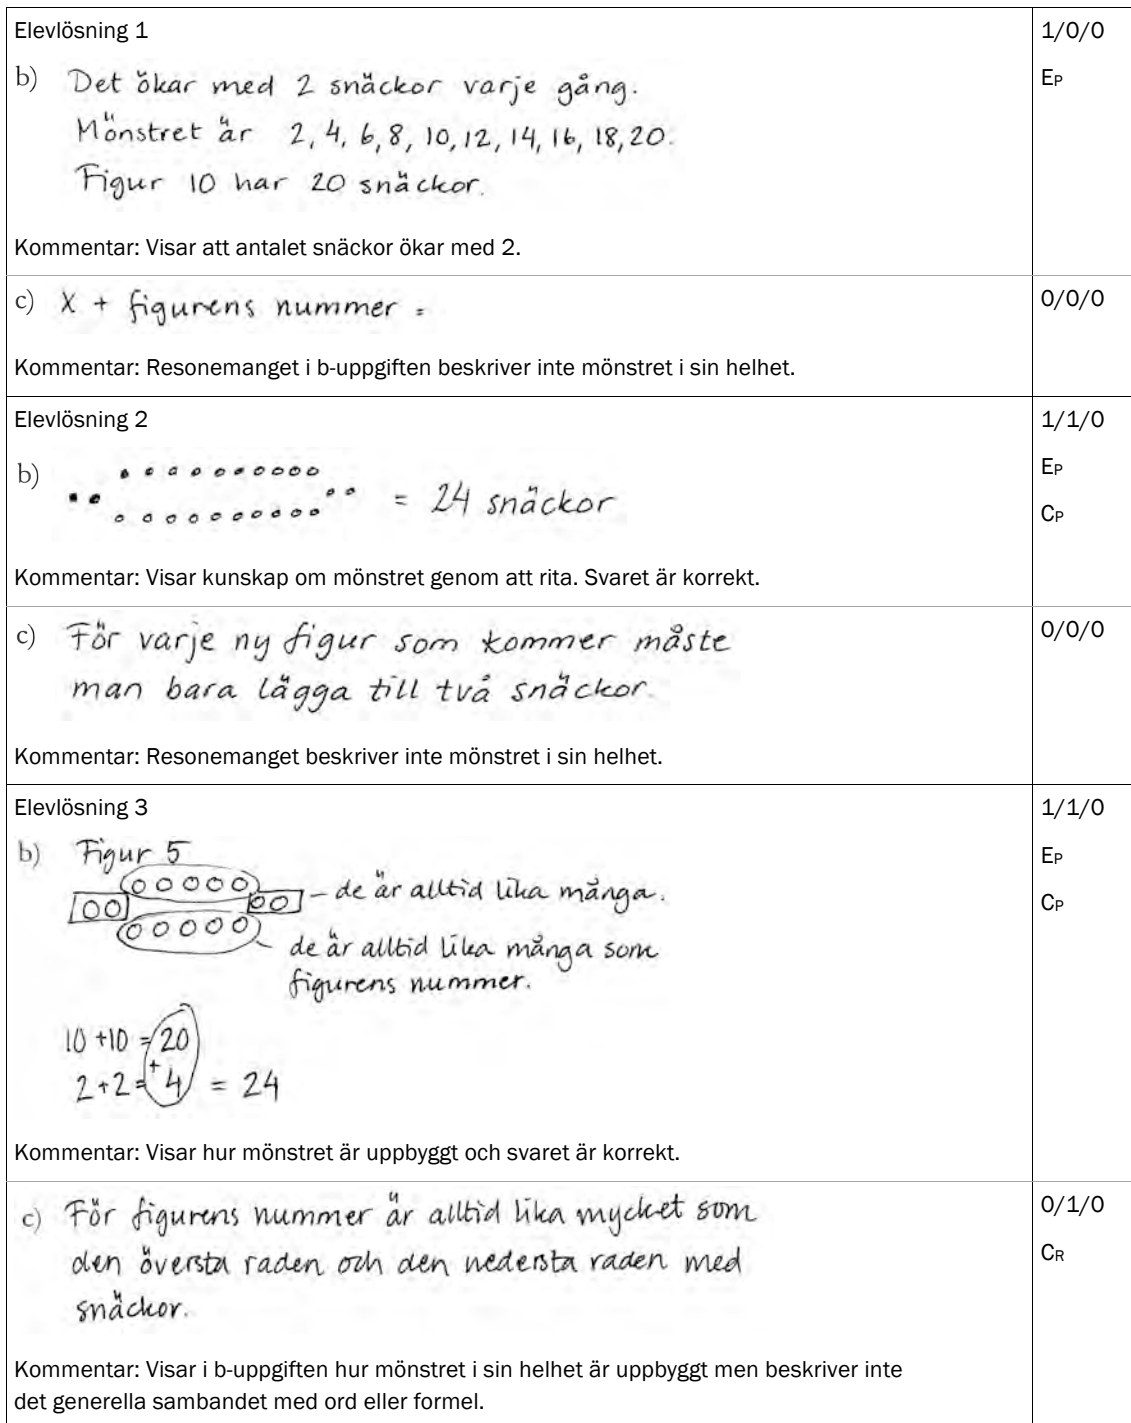 Elevlösning 1
1/0/0
b) Det ökar med 2 snäckor varje gång.
EP
Mönstret är 2, 4, 6, 8, 10, 12, 14, 16, 18, 20.
Figur 10 har 20 snäckor.
Kommentar: Visar att antalet snäckor ökar med 2.
c) X + figurens nummer =
0/0/0
Kommentar: Resonemanget i b-uppgiften beskriver inte mönstret i sin helhet.
Elevlösning 2
1/1/0
EP
b) = 24 snäckor
CP
Kommentar: Visar kunskap om mönstret genom att rita. Svaret är korrekt.
c) För varje ny figur som kommer måste
0/0/0
man bara lägga till två snäckor.
Kommentar: Resonemanget beskriver inte mönstret i sin helhet.
Elevlösning 3
1/1/0
b) Figur 5
EP
– de är alltid lika många.
CP
de är alltid lika många som
figurens nummer.
10 + 10 = 20
+
2 + 2 = 4 = 24
Kommentar: Visar hur mönstret är uppbyggt och svaret är korrekt.
c) För figurens nummer är alltid lika mycket som
0/1/0
den översta raden och den nedersta raden med
CR
snäckor.
Kommentar: Visar i b-uppgiften hur mönstret i sin helhet är uppbyggt men beskriver inte
det generella sambandet med ord eller formel.